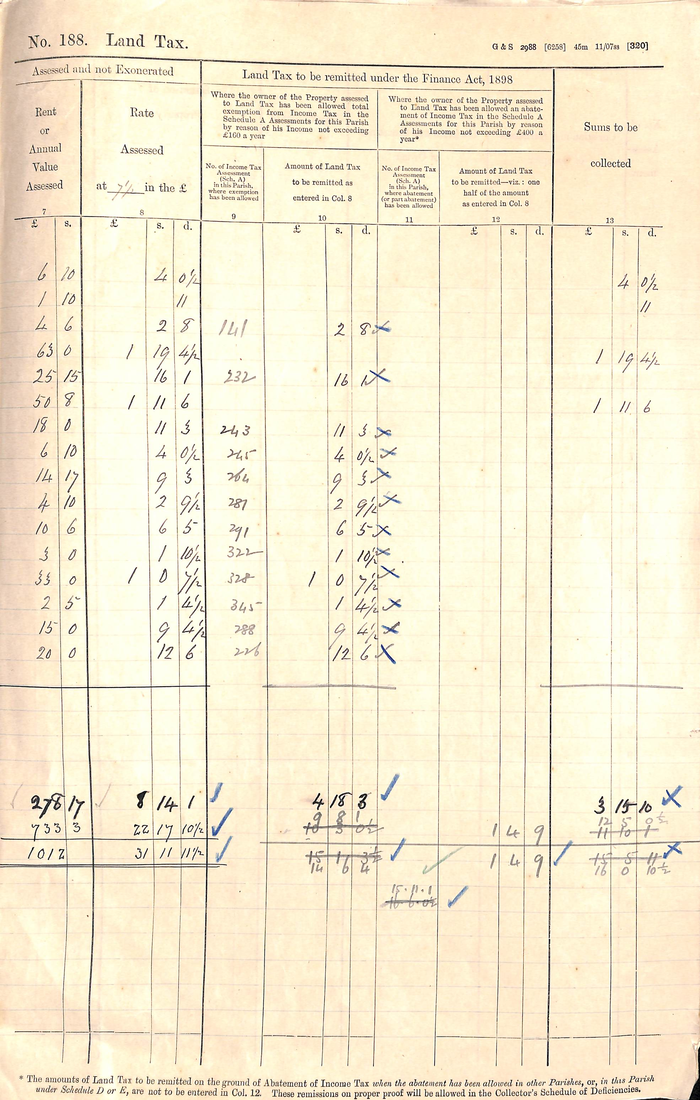 No. 188. Land Tax.
G & S 2988 [6258] 45m 11/07ss [320]
Assessed and not Exonerated
Land Tax to be remitted under the Finance Act, 1898
Rent
or
Annual
Value
Assessed
Rate
Assessed
at 7½ in the £
Where the owner of the Property assessed
to Land Tax has been allowed total
exemption from Income Tax in the
Schedule A Assessments for this Parish
by reason of his Income not exceeding
£160 a year
Where the owner of the Property assessed
to Land Tax has been allowed an abate-
ment of Income Tax in the Schedule A
Assessments for this Parish by reason
of his Income not exceeding £400 a
year*
Sums to be
collected
No. of Income Tax
Assessment
(Sch. A)
in this Parish,
where exemption
has been allowed
Amount of Land Tax
to be remitted as
entered in Col. 8
No. of Income Tax
Assessment
(Sch. A)
in this Parish,
where abatement
(or part abatement)
has been allowed
Amount of Land Tax
to be remitted—viz.: one
half of the amount
as entered in Col. 8
7 8 9 10 11 12 13
£ s. £ s. d. £ s. d. £ s. d. £ s. d.
6 10 4 0½ 4 0½
1 10 11 11
4 6 2 8 141 2 8
63 0 1 19 4½ 1 19 4½
25 15 16 1 232 16 1
50 8 1 11 6 1 11 6
18 0 11 3 243 11 3
6 10 4 0½ 245 4 0½
14 17 9 3 264 9 3
4 10 2 9½ 281 2 9½
10 6 6 5 291 6 5
3 0 1 10½ 322 1 10½
33 0 1 0 7½ 328 1 0 7½
2 5 1 4½ 345 1 4½
15 0 9 4½ 288 9 4½
20 0 12 6 226 12 6
278 17 8 14 1 4 18 3 3 15 10
9 8 1 12 5 0½
733 3 22 17 10½ 10 3 0½ 1 4 9 11 10 1
1012 31 11 11½ 15 1 3½ 1 4 9 15 5 11
14 6 4 16 0 10½
15·11·1
16·6·0½
* The amounts of Land Tax to be remitted on the ground of Abatement of Income Tax when the abatement has been allowed in other Parishes, or, in this Parish
under Schedule D or E, are not to be entered in Col. 12. These remissions on proper proof will be allowed in the Collector's Schedule of Deficiencies.